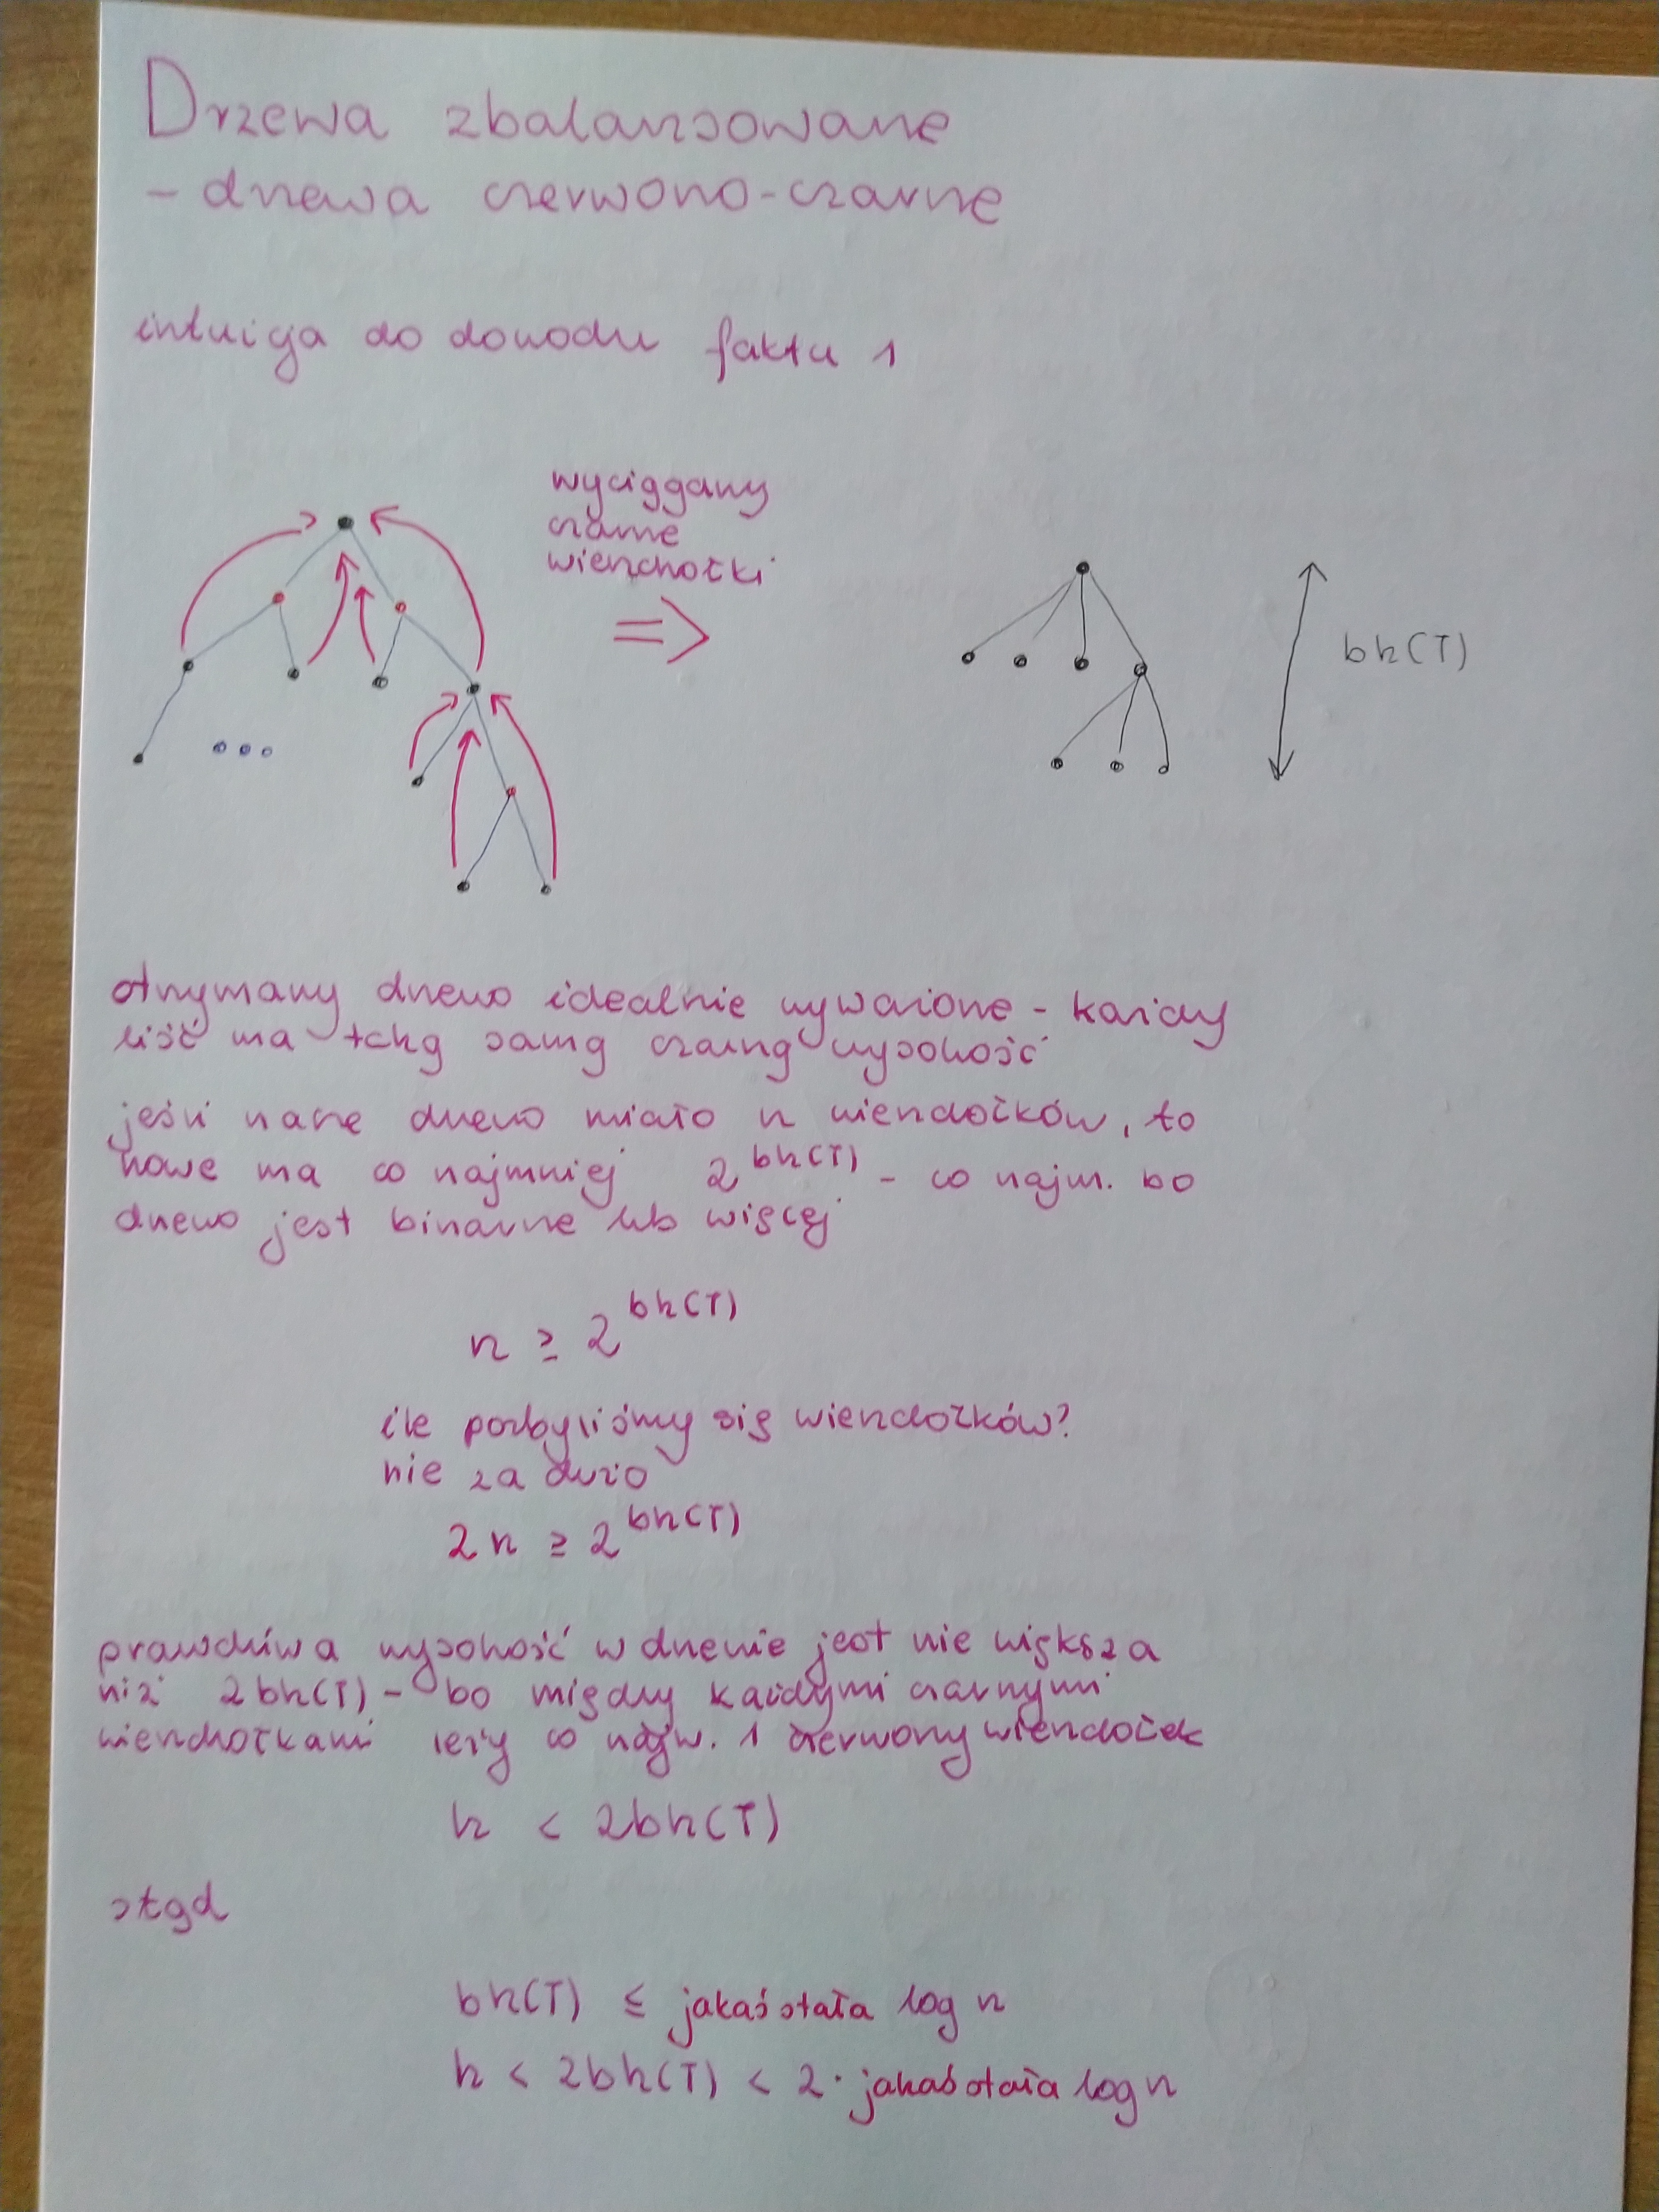 Drzewa zbalansowane
- drzewa czerwono-czarne
intuicja do dowodu faktu 1
wyciągamy
czarne
wierzchołki
=>
bh(T)
otrzymamy drzewo idealnie wyważone - każdy
liść ma taką samą czarną wysokość
jeśli nasze drzewo miało n wierzchołków, to
nowe ma co najmniej 2^bh(T) - co najm. bo
drzewo jest binarne lub więcej
n ≥ 2^bh(T)
ile pozbyliśmy się wierzchołków?
nie za dużo
2n ≥ 2^bh(T)
prawdziwa wysokość w drzewie jest nie większa
niż 2bh(T) - bo między każdymi czarnymi
wierzchołkami leży co najw. 1 czerwony wierzchołek
h < 2bh(T)
stąd
bh(T) ≤ jakaś stała log n
h < 2bh(T) < 2 · jakaś stała log n